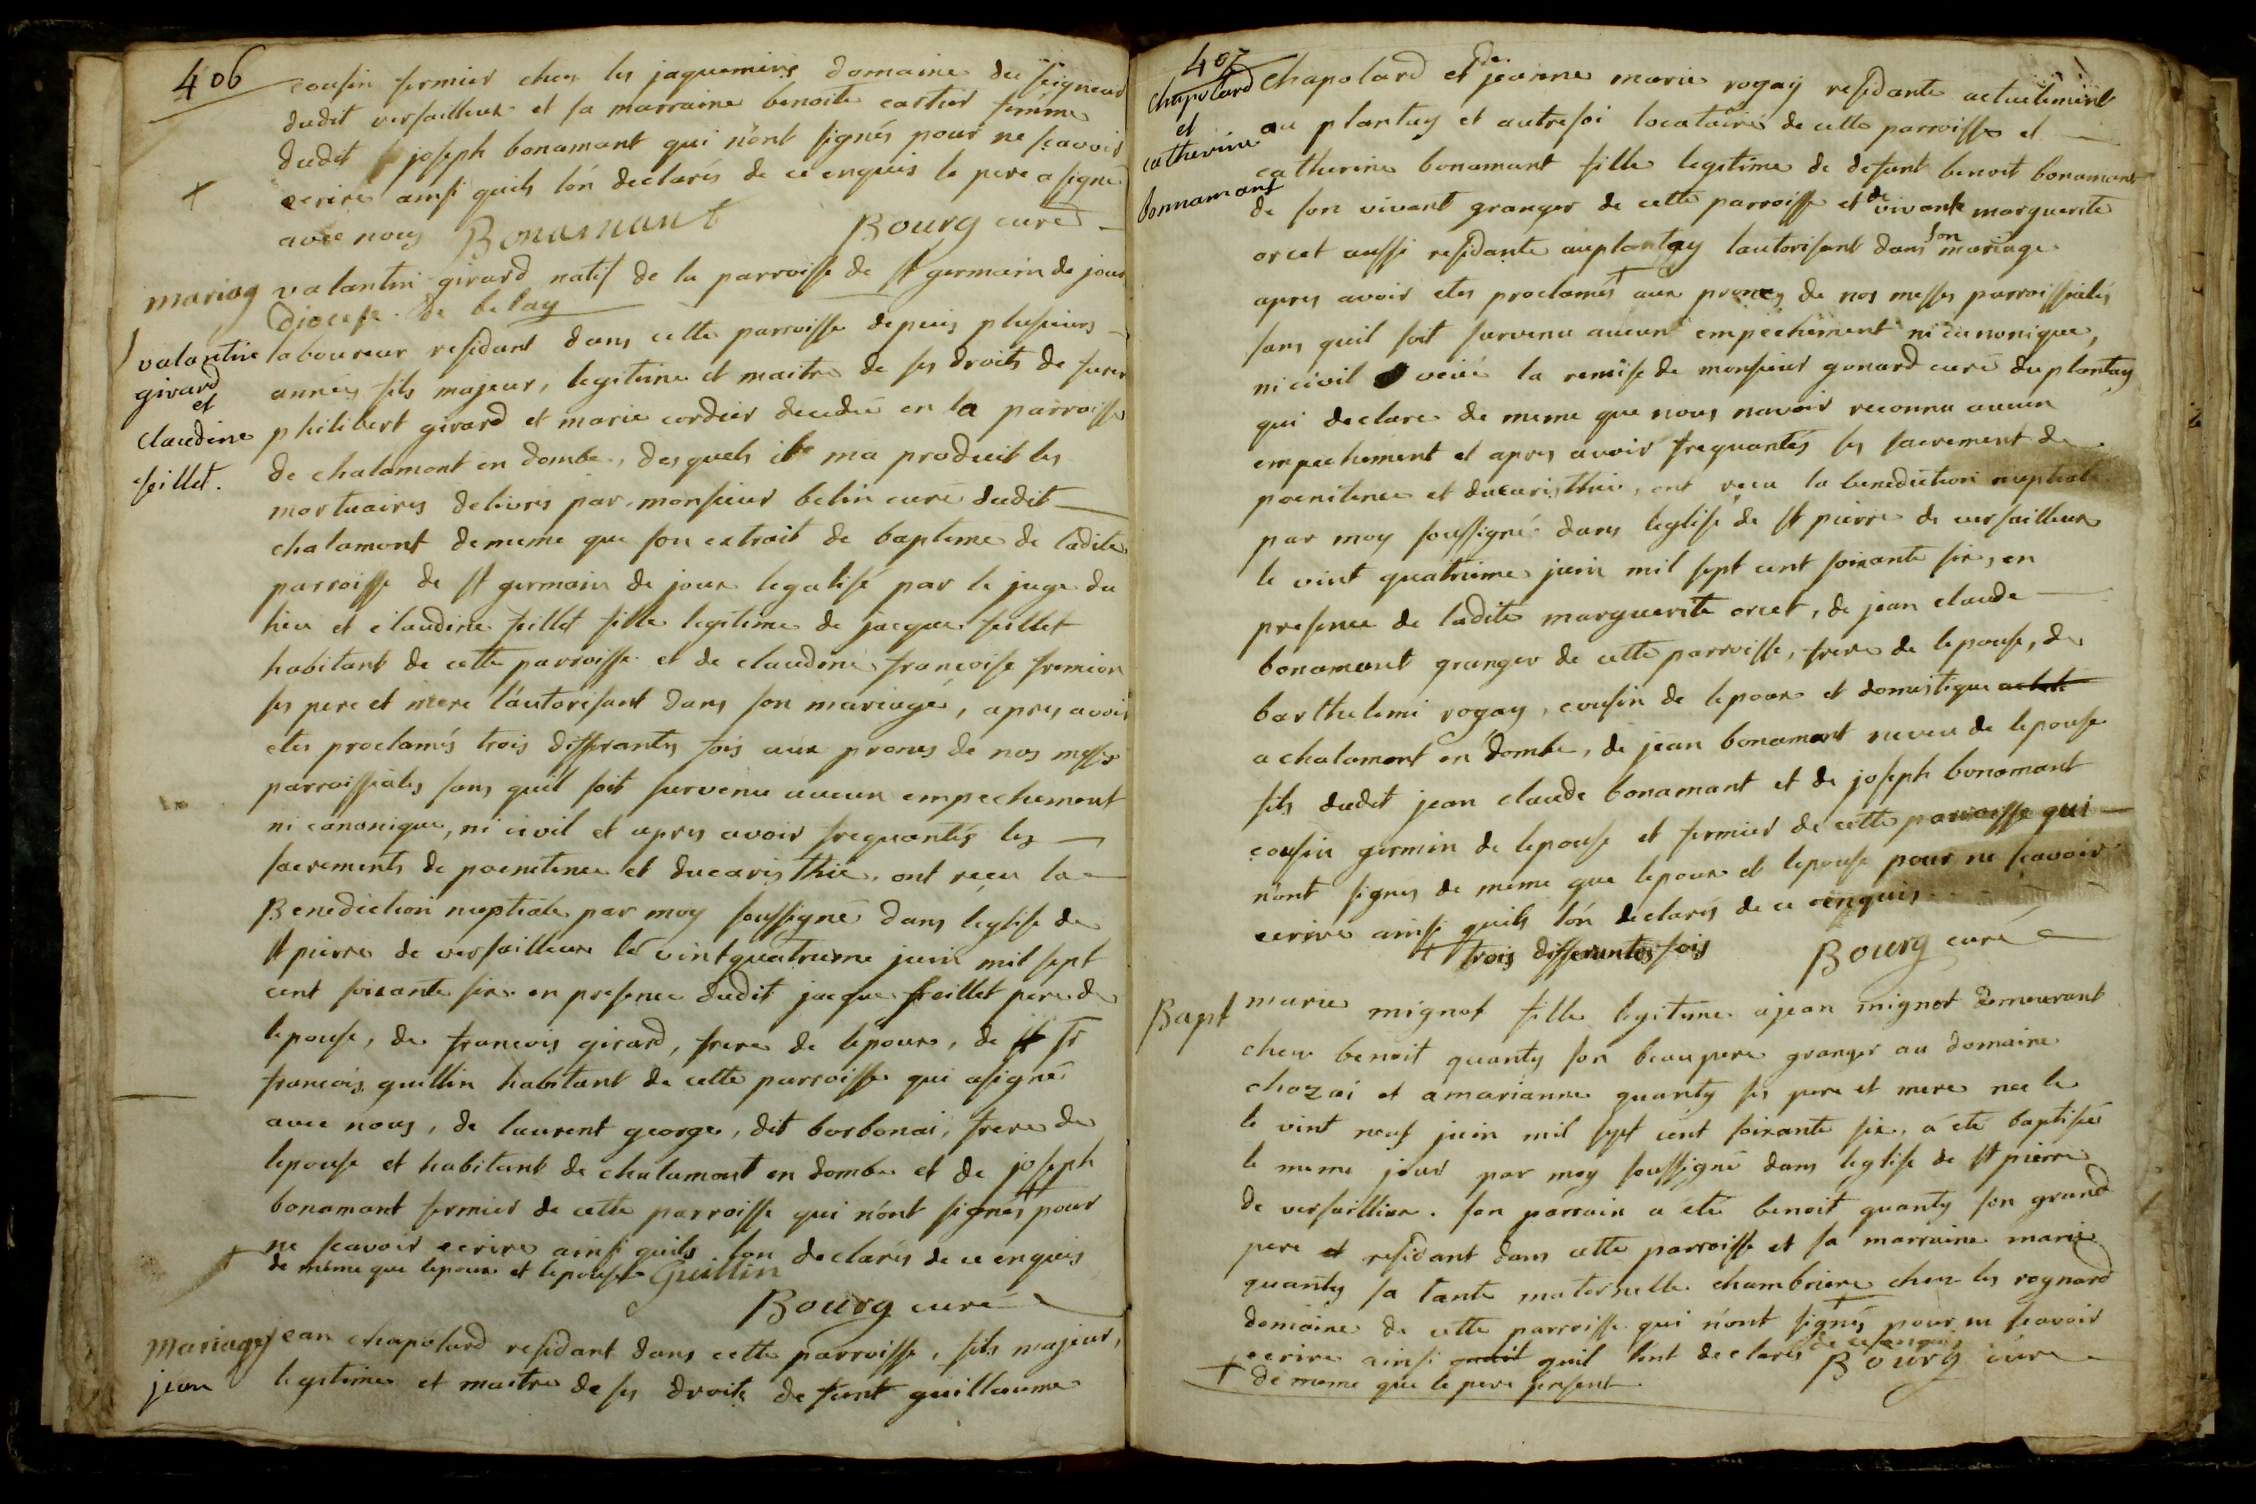 406
cousin fermier chez les jaquemins domaine du seigneur
dudit versailleux et sa marraine benoite cartier femme
dudit joseph bonamant qui n'ont signés pour ne scavoir
ecrire ainsi quils l'on declarés de ce enquis le pere a signé
avec nous Bonamant Bourg curé
mariag valantin girard natif de la parroisse de st germain de joux
Diocese de belay
valantin girard et claudine feillet.
laboureur residant dans cette parroisse depuis plusieurs
années fils majeur, legitime et maitre de ses droits de feux
philibert girard et marie cordier decedée en la parroisse
de chalamont en dombe, desquels il ma produit les
mortuaires delivrés par monsieur belin curé dudit
chalamont de meme que son extrait de bapteme de ladite
parroisse de st germain de joux legalisé par le juge du
lieu et claudine feillet fille legitime de jacque feillet
habitant de cette parroisse et de claudine francoise fremion
ses pere et mere l'autorisant dans son mariage, apres avoir
etes proclamés trois differantes fois aux prones de nos messes
parroissiales sans quil soit survenu aucun empechement
ni canonique, ni civil et apres avoir frequantés les
sacrements de poenitence et ducaristhie, ont reçu la
Benediction nuptiale par moy soussigné dans leglise de
st pierre de versailleux le vintquatrieme juin mil sept
cent soixante six en presence dudit jacque feillet pere de
lepouse, de francois girard, frere de lepoux, de sr
francois guillin habitant de cette parroisse qui a signé
avec nous, de laurent george, dit borbonai, frere de
lepouse et habitant de chalamont en dombe et de joseph
bonamant fermier de cette parroisse qui n'ont signés + pour
ne scavoir ecrire ainsi quils l'on declarés de ce enquis
+ de même que lepoux et lepouse Guillin
Bourg curé
Mariage jean chapolard residant dans cette parroisse, fils majeur,
jean legitime et maitre de ses droits de funt guillaume
407
chapolard et catherine bonnamant
chapolard et de jeanne marie rogay residante actuelement
au plantay et autrefoi locataire de cette parroisse et
catherine bonamant fille legitime de defunt benoit bonamant
de son vivant granger de cette parroisse et de vivante marguerite
orcet aussi residante au plantay lautorisant dans son mariage
apres avoir etes proclamés + aux prones de nos messes parroissiales
sans quil soit survenu aucun empechement ni canonique,
ni civil veüe la remise de monsieur gonard curé du plantay
qui declare de meme que nous navoir reconnu aucun
empechement et apres avoir frequantés les sacrement de
poenitence et ducaristhie, ont reçu la benediction nuptiale
par moy soussigné dans leglise de st pierre de versailleux
le vint quatrieme juin mil sept cent soixante six, en
presence de ladite marguerite orcet, de jean claude
bonamant granger de cette parroisse, frere de lepouse, de
barthelemi rogay, cousin de lepoux et domestique
a chalamont en dombe, de jean bonamant neveu de lepouse
fils dudit jean claude bonamant et de joseph bonamant
cousin germin de lepouse et fermier de cette parroisse qui
n'ont signés de même que lepoux et lepouse pour ne scavoir
ecrire ainsi quils l'on declarés de ce enquis
+ trois differantes fois Bourg curé
Bapt marie mignot fille legitime a jean mignot demeurant
chez benoit quanty son beaupere granger au domaine
chozai et a marianne quanty ses pere et mere née le
le vint neuf juin mil sept cent soixante six, a été baptisée
le meme jour par moy soussigné dans leglise de st pierre
de versaillieux. son parrain a été benoit quanty son grand
pere et residant dans cette parroisse et sa marraine marie
quanty sa tante maternelle chambriere chez les rognard
domaine de cette parroisse qui n'ont signés + pour ne scavoir
ecrire ainsi quil l'ont declarés de ce enquis
+ de meme que le pere present Bourg curé